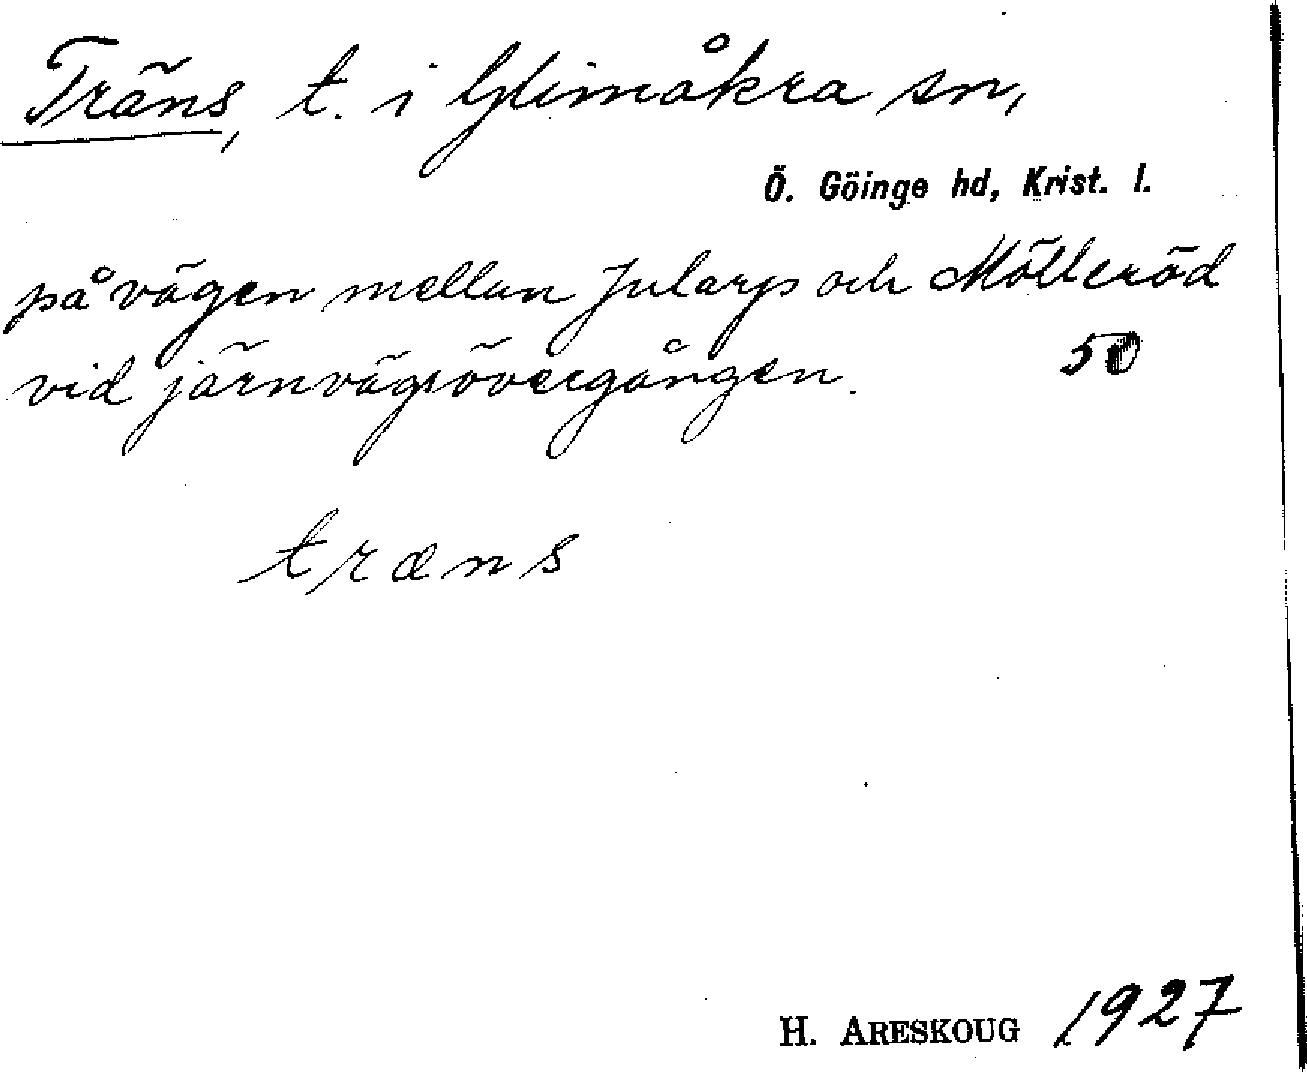 Träns, t. i Glimåkra sn,
Ö. Göinge hd, Krist. l.
på vägen mellan Jularp och Mölleröd
vid järnvägsövergången. 50
træns
H. ARESKOUG 1927